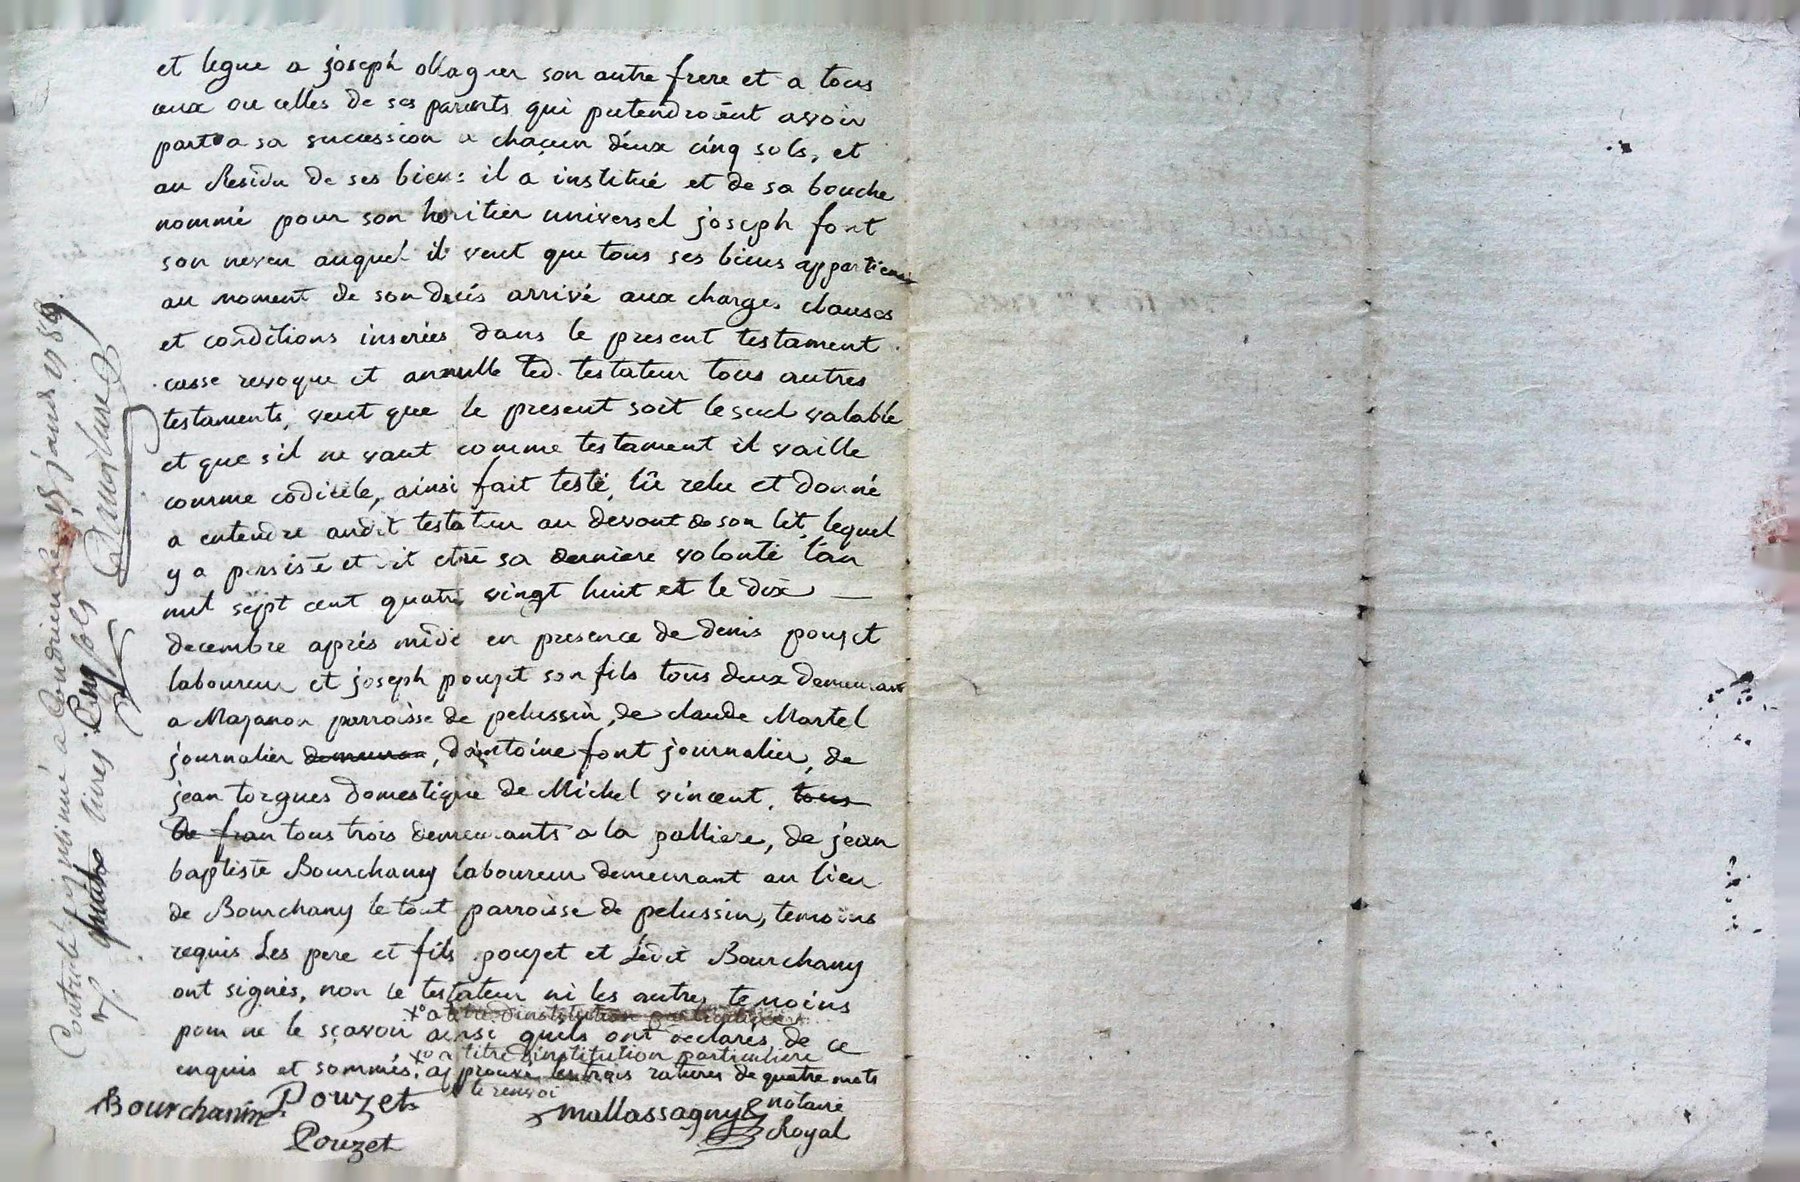 et legue a joseph Magner son autre frere et a tous
ceux ou celles de ses parents qui pretendroient avoir
part a sa succession a chaçun d'eux cinq sols, et
au Residu de ses biens il a institué et de sa bouche
nommé pour son heritier universel joseph font
son neveu auquel il veut que tous ses biens appartienn
au moment de son decés arrivé aux charges clauses
et conditions inserées dans le present testament
casse revoque et annulle led. testateur tous autres
testaments, veut que le present soit le seul valable
et que s'il ne vaut comme testament il vaille
comme codicile, ainsi fait testé, lû relu et donné
a entendre audit testateur au devant de son lit, lequel
y a persisté et dit etre sa derniere volonté l'an
mil sept cent quatre vingt huit et le dix
decembre aprés midi en presence de denis pouzet
laboureur et joseph pouzet son fils tous deux demeurant
a Mazanon parroisse de pelussin, de claude Martel
journalier demeuran, d'antoine font journalier, de
jean torgues domestique de Michel vincent, tous
de fran tous trois demeurants a la palliere, de jean
baptiste Bourchany laboureur demeurant au lieu
de Bourchany le tout parroisse de pelussin, temoins
requis Les pere et fils pouzet et Ledit Bourchany
ont signés, non le testateur ni les autres temoins
x° a titre d'institution particuliere
pour ne le sçavoir ainsi quils ont declarés de ce
x° a titre d'institution particuliere
enquis et sommés. approuvé les trois ratures de quatre mots
le renvoi
Bourchanin Pouzet mallassagny notaire
Pouzet Royal
Controlé et insinué a Condrieu le 15 janv 1789
quatre livres Cinq sols